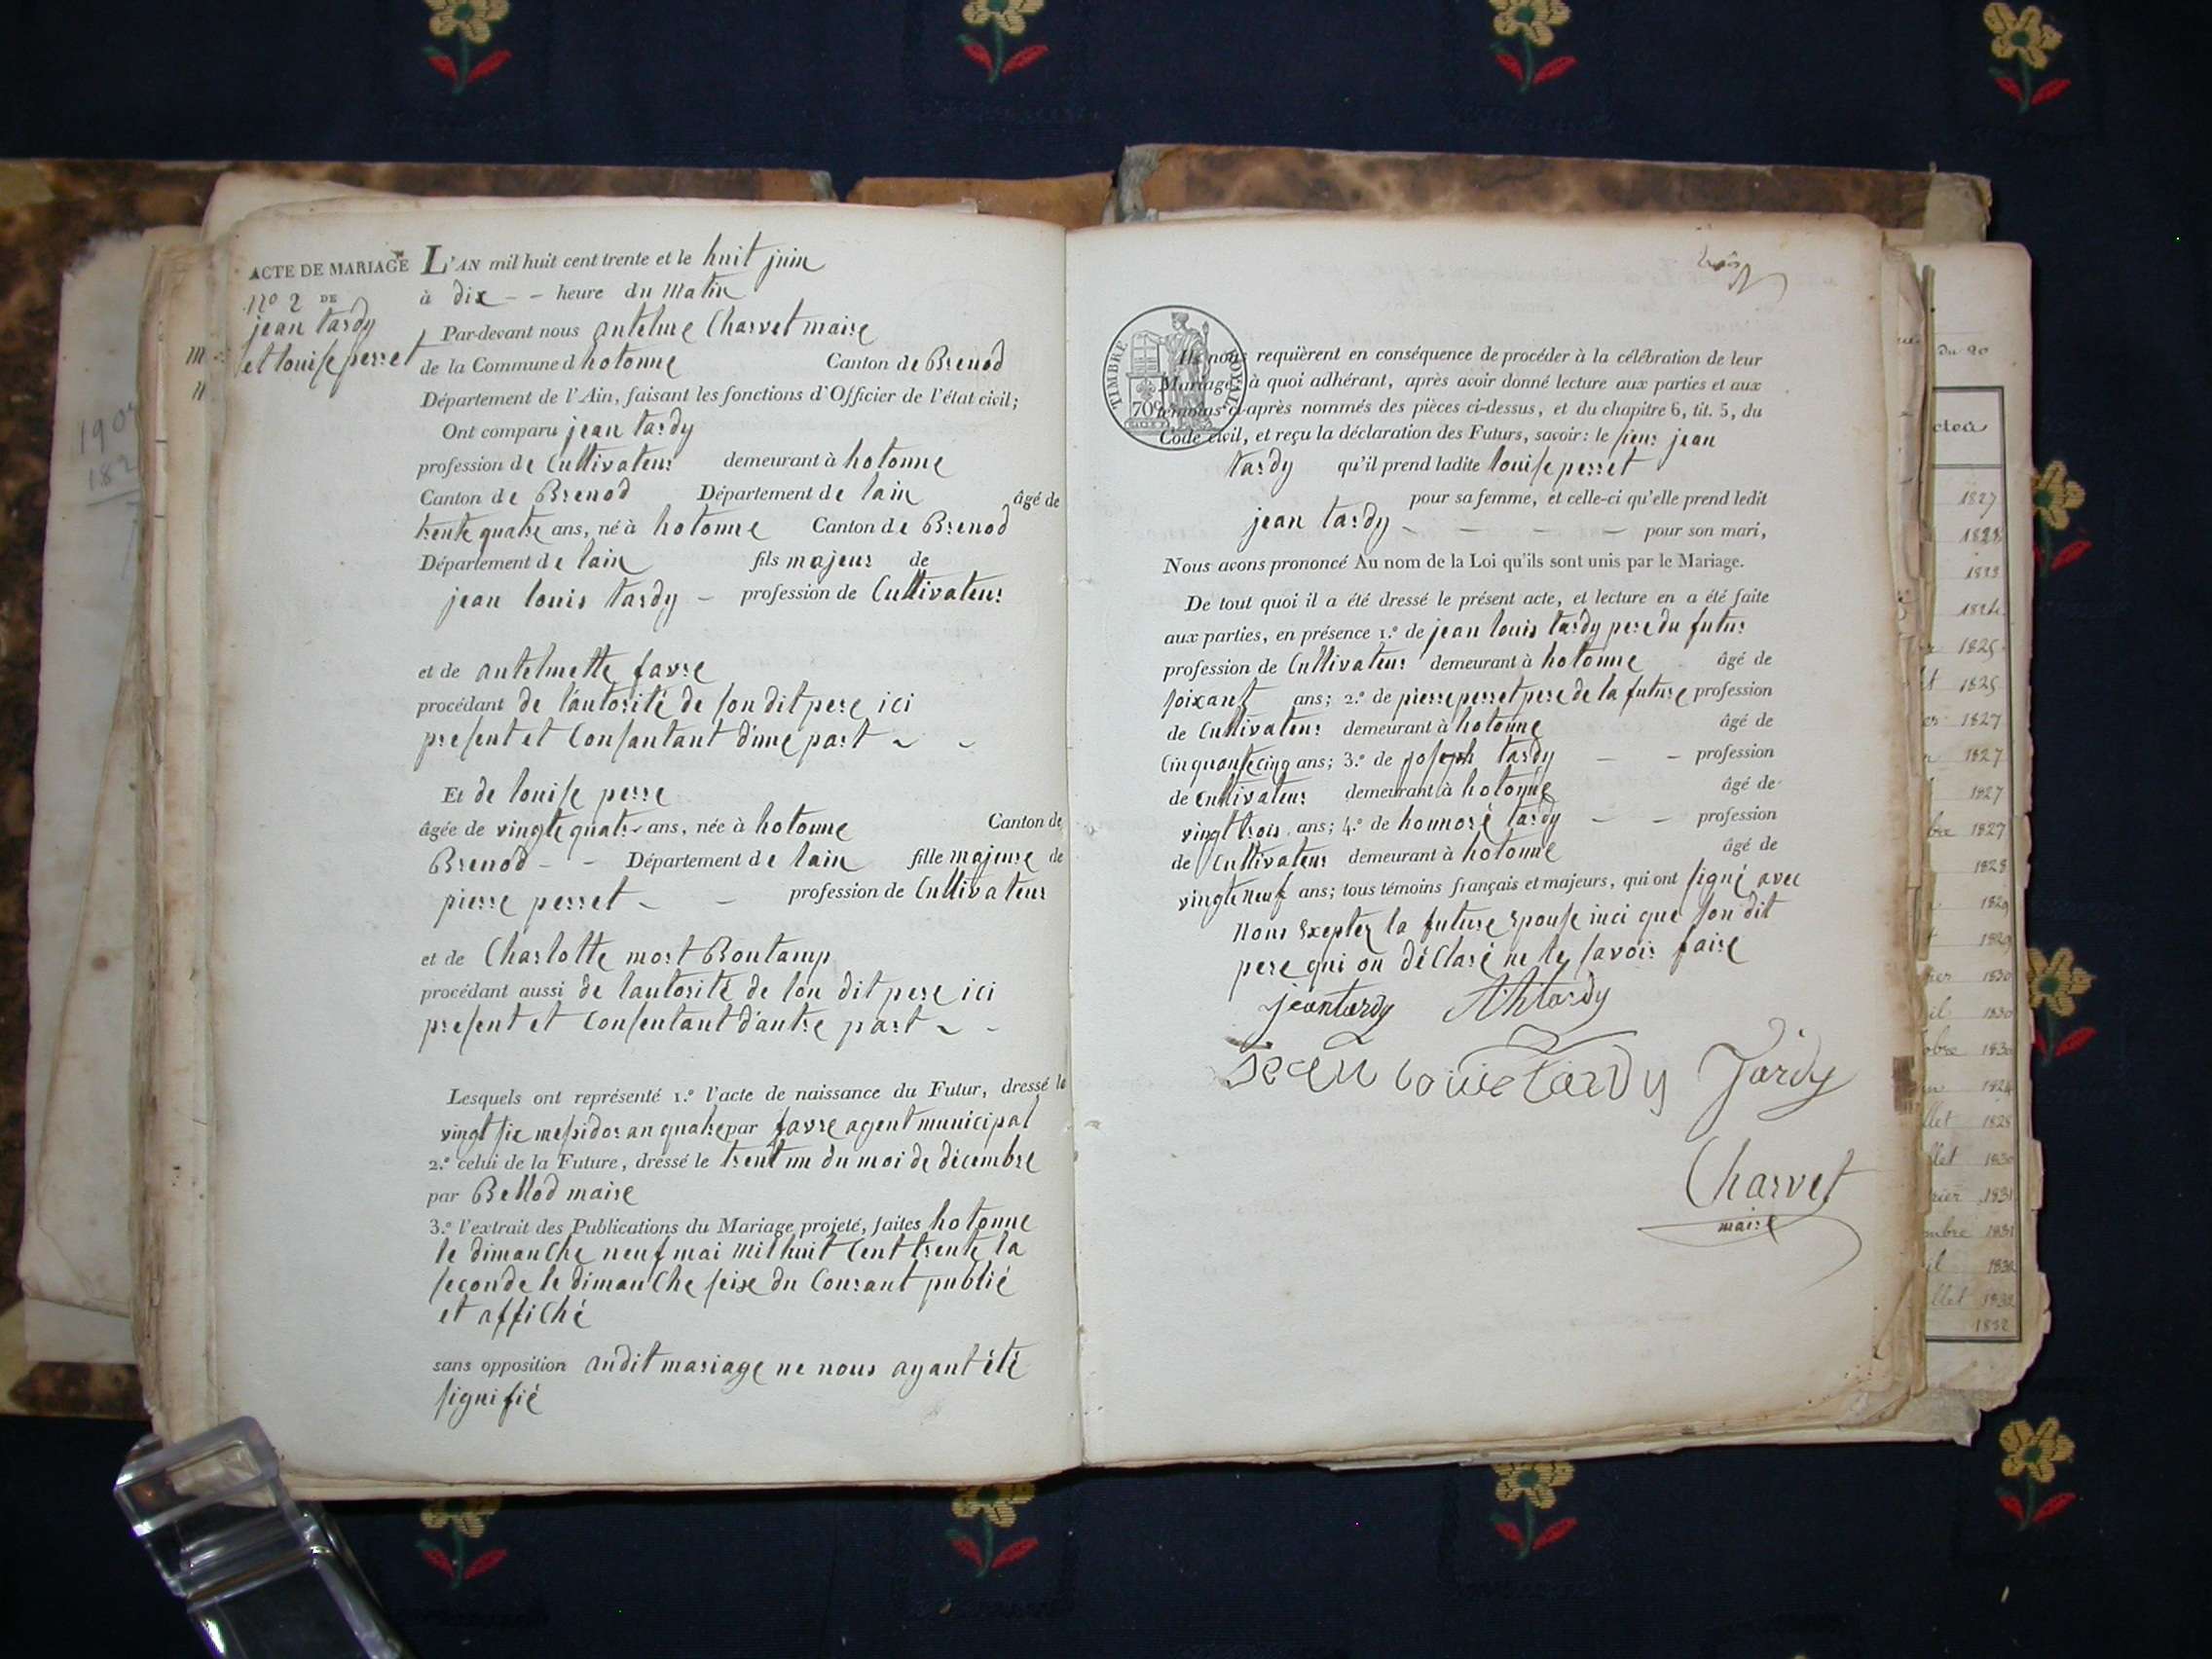 ACTE DE MARIAGE
N.º 2 DE
jean tardy
et louise perret
L'AN mil huit cent trente et le huit juin
à dix - - heure du matin
Par-devant nous antelme Charvet maire
de la Commune d hotonne Canton de Brenod
Département de l'Ain, faisant les fonctions d'Officier de l'état civil;
Ont comparu jean tardy
profession de Cultivateur demeurant à hotonne
Canton de Brenod Département de lain âgé de
trente quatre ans, né à hotonne Canton de Brenod
Département de lain fils majeur de
jean louis tardy - profession de Cultivateur
et de antelmette favre
procédant de l'autorité de son dit pere ici
present et Consantant d'une part - -
Et de louise perre
âgée de vingte quatre ans, née à hotonne Canton de
Brenod - - Département de lain fille majeure de
pierre perret - - profession de Cultivateur
et de Charlotte mort Bontamp
procédant aussi de lautorité de son dit pere ici
present et Consentant d'autre part - -
Lesquels ont représenté 1.º l'acte de naissance du Futur, dressé le
vingt six mesidor an quatre par favre agent municipal
2.º celui de la Future, dressé le trent un du moi de décembre
par Bellod maire
3.º l'extrait des Publications du Mariage projeté, faites hotonne
le dimanche neuf mai mil huit Cent trente la
seconde le dimanche seise du Courant publié
et affiché
sans opposition audit mariage ne nous ayant été
signifié
TIMBRE ROYAL
70
Ils nous requièrent en conséquence de procéder à la célébration de leur
Mariage, à quoi adhérant, après avoir donné lecture aux parties et aux
témoins ci-après nommés des pièces ci-dessus, et du chapitre 6, tit. 5, du
Code civil, et reçu la déclaration des Futurs, savoir: le sieur jean
tardy qu'il prend ladite louise perret
pour sa femme, et celle-ci qu'elle prend ledit
jean tardy - - - - pour son mari,
Nous avons prononcé Au nom de la Loi qu'ils sont unis par le Mariage.
De tout quoi il a été dressé le présent acte, et lecture en a été faite
aux parties, en présence 1.º de jean louis tardy pere du futur
profession de Cultivateur demeurant à hotonne âgé de
soixant ans; 2.º de pierre perret pere de la future profession
de Cultivateur demeurant à hotonne âgé de
Cinquante cinq ans; 3.º de joseph tardy - - profession
de Cultivateur demeurant à hotonne âgé de
vingt trois ans; 4.º de honnoré tardy - - profession
de Cultivateur demeurant à hotonne âgé de
vingte neuf ans; tous témoins français et majeurs, qui ont signé avec
nous Exepter la future Epouse inci que son dit
pere qui on déclaré ne le savoir faire
jean tardy tardy
jean louis tardy Tardy
Charvet
maire
du 20
1827
1828
1823
1824
1825
1825
1827
1827
1827
1827
1828
1829
1829
1830
1830
1830
1824
1825
1830
1831
1831
1832
1832
1832